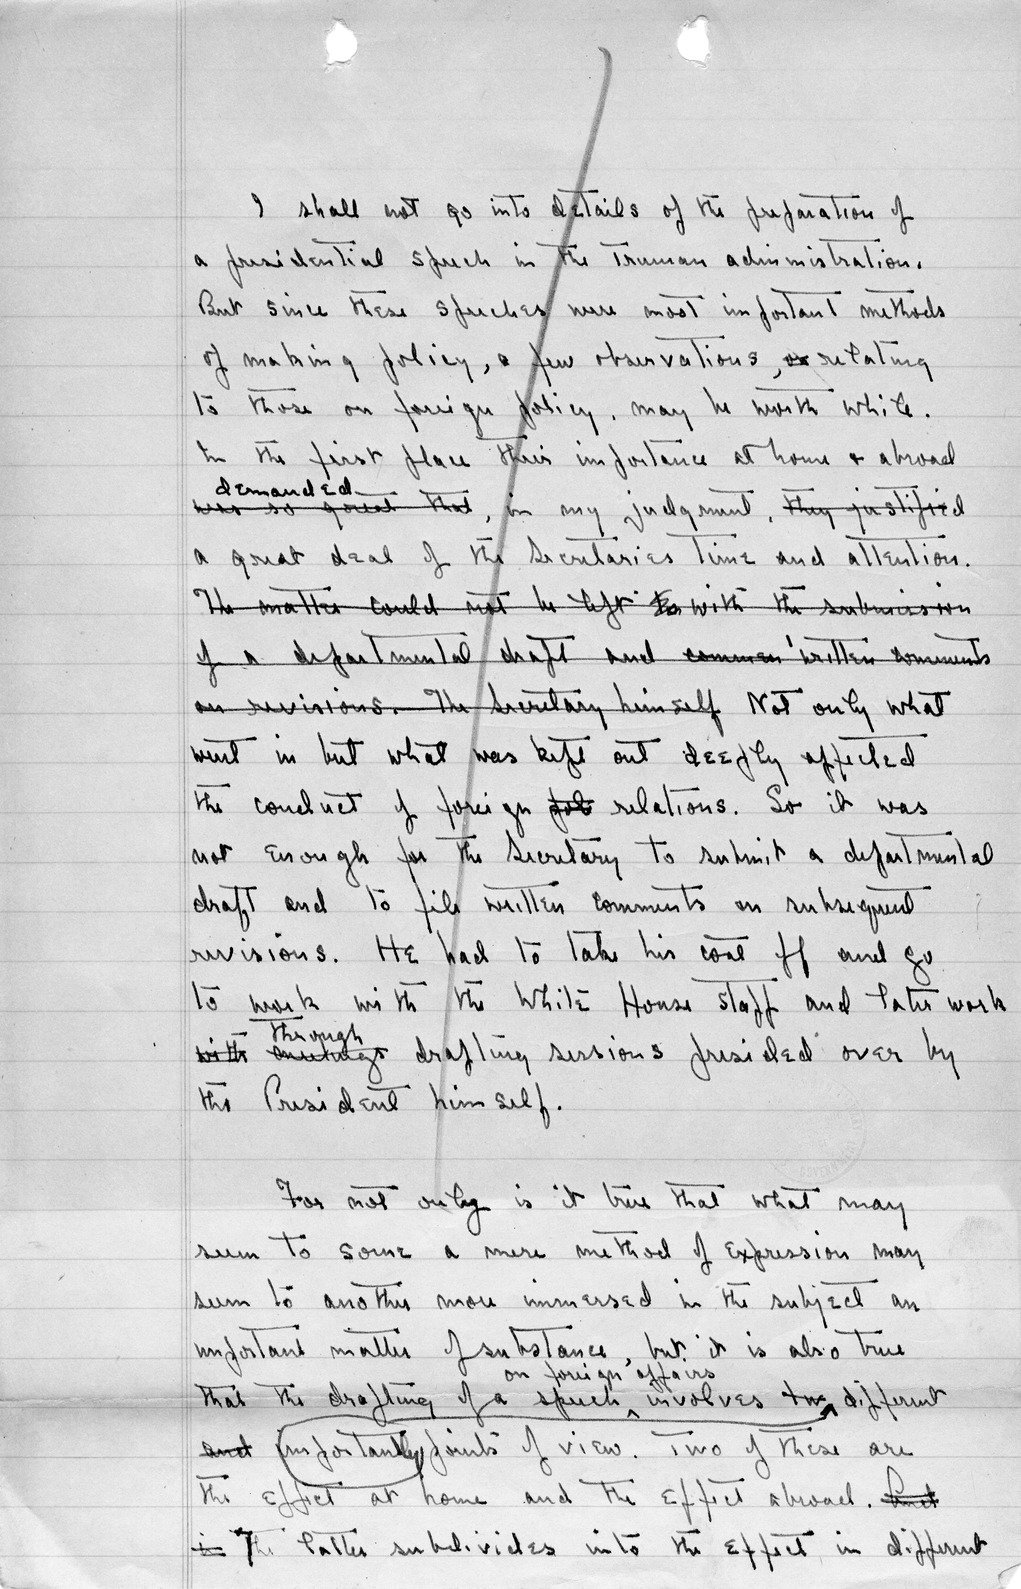 I shall not go into details of the preparation of
a presidential speech in the Truman administration.
But since these speeches were most important methods
of making policy, a few observations, as relating
to those on foreign policy, may be worth while.
In the first place their importance at home & abroad
demanded
was so great that, in my judgment, they justified
a great deal of the Secretaries time and attention.
The matter could not be left to with the submission
of a departmental draft and commen written comments
on revisions. The Secretary himself Not only what
went in but what was kept out deeply affected
the conduct of foreign pol relations. So it was
not enough for the Secretary to submit a departmental
draft and to file written comments on subsequent
revisions. He had to take his coat off and go
to work with the White House Staff and later work
through
with meetings drafting sessions presided over by
the President himself.
For not only is it true that what may
seem to some a mere method of expression may
seem to another more immersed in the subject an
important matter of substance, but it is also true
on foreign affairs
that the drafting of a speech ^ involves two different
and importantly points of view. Two of these are
the effect at home and the effect abroad. But
in The latter subdivides into the effect in different